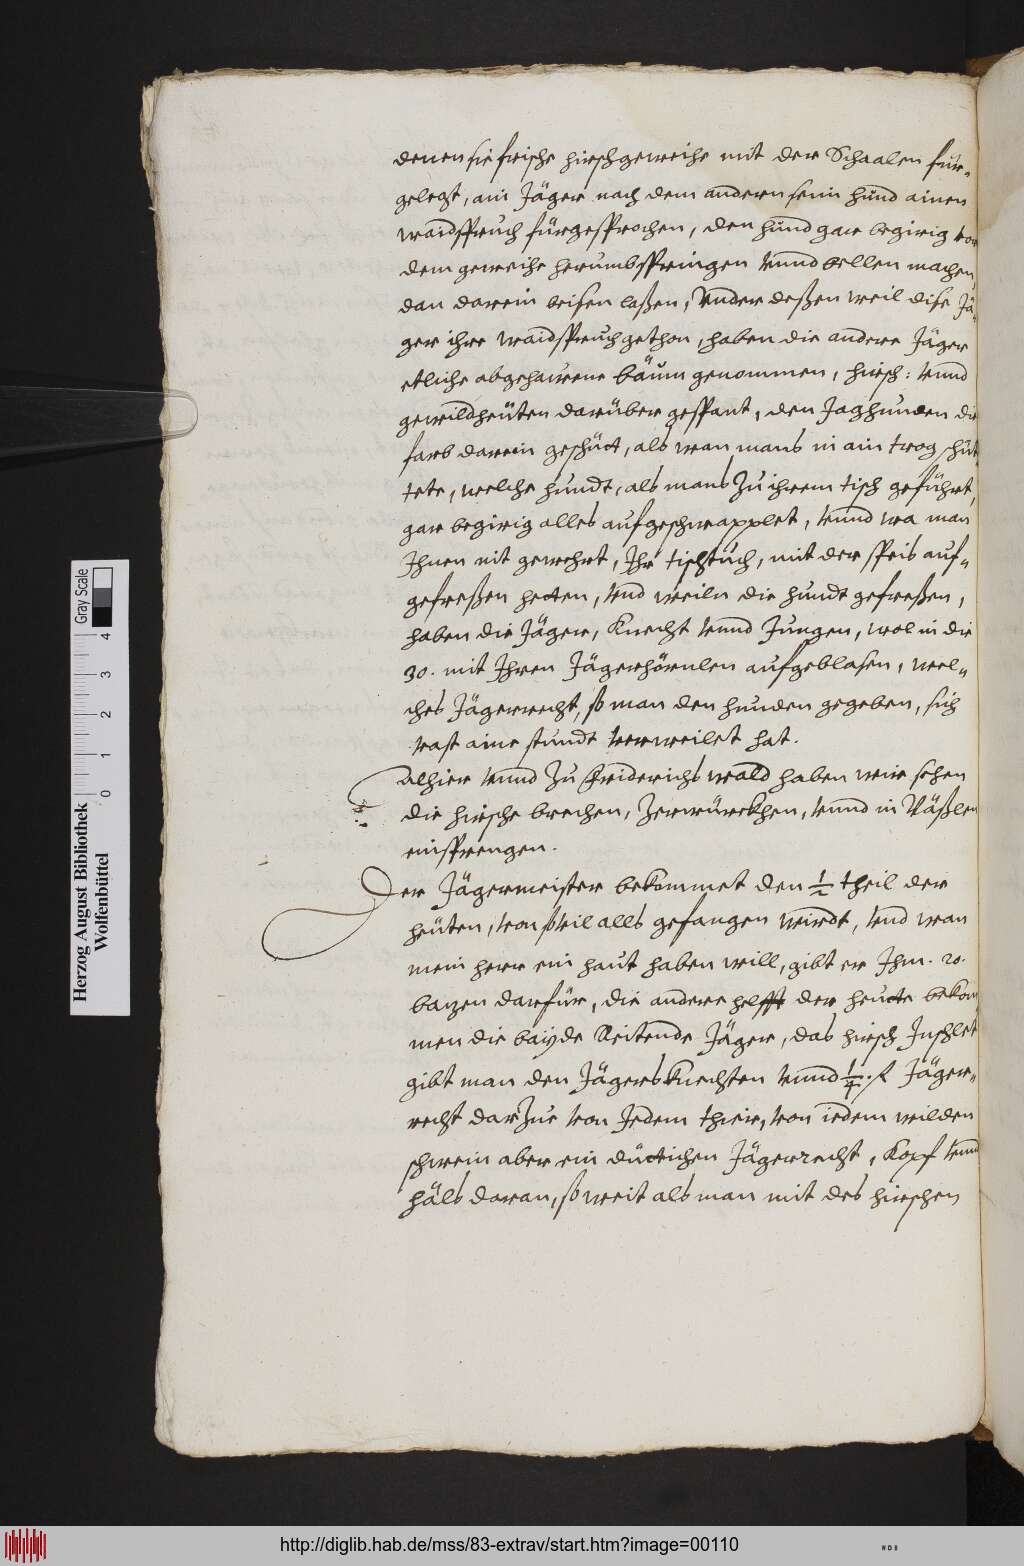 denen sie frische hirschgeweihe mit der Schaalen für-
gelegt, ain Jäger nach dem andern seim hund ainen
waidspruch fürgesprochen, den hund gar begirig vor
dem geweihe herumbspringen vnnd bellen machen,
dan darein beisen laßen, Vnder deßen weil dise Jä-
ger ihre waidspruch gethon, haben die andere Jäger
etliche abgehauene bäum genommen, hirsch: vnnd
gewildheüten darüber gespant, den Jaghunden die
farb darein geschüt, als wan mans in ain trog schüt
tete, welche hundt, als mans zu ihrem tisch geführt,
gar begirig alles aufgeschwapplet, vnnd wa man
Ihnen nit gewehrt, Ihr tischtuch, mit der speis auf-
gefreßen hetten, vnd weiln die hundt gefreßen,
haben die Jäger, Knecht vnnd Jungen, wol in die
30. mit Ihren Jägerhörnlen aufgeblasen, wel-
ches Jägerrecht, so man den hunden gegeben, sich
vast aine stundt verweilet hat.
Alhier vnnd zu Friderichswald haben wir sehen
die hirsche brechen, zerwürckhen, vnnd in Väßlen
einsprengen.
Der Jägermeister bekommet den 1/2 theil der
heüten, von so vil alls gefangen wirdt, vnd wan
mein herr ein haut haben will, gibt er Ihm. 20.
bazen darfür, die andere helfft der heute bekom
men die bayde Reitende Jäger, das hirsch Inschlet
gibt man den Jägersknechten vnnd 1/4. f Jäger-
recht darzue von Jedem thier, von iedem wilden
schwein aber ein düttichen Jägerrecht, Kopf vnnd
häls daran, so weit als man mit des hirschen
Herzog August Bibliothek
Wolfenbüttel
Gray Scale
0 1 2 3 4
http://diglib.hab.de/mss/83-extrav/start.htm?image=00110